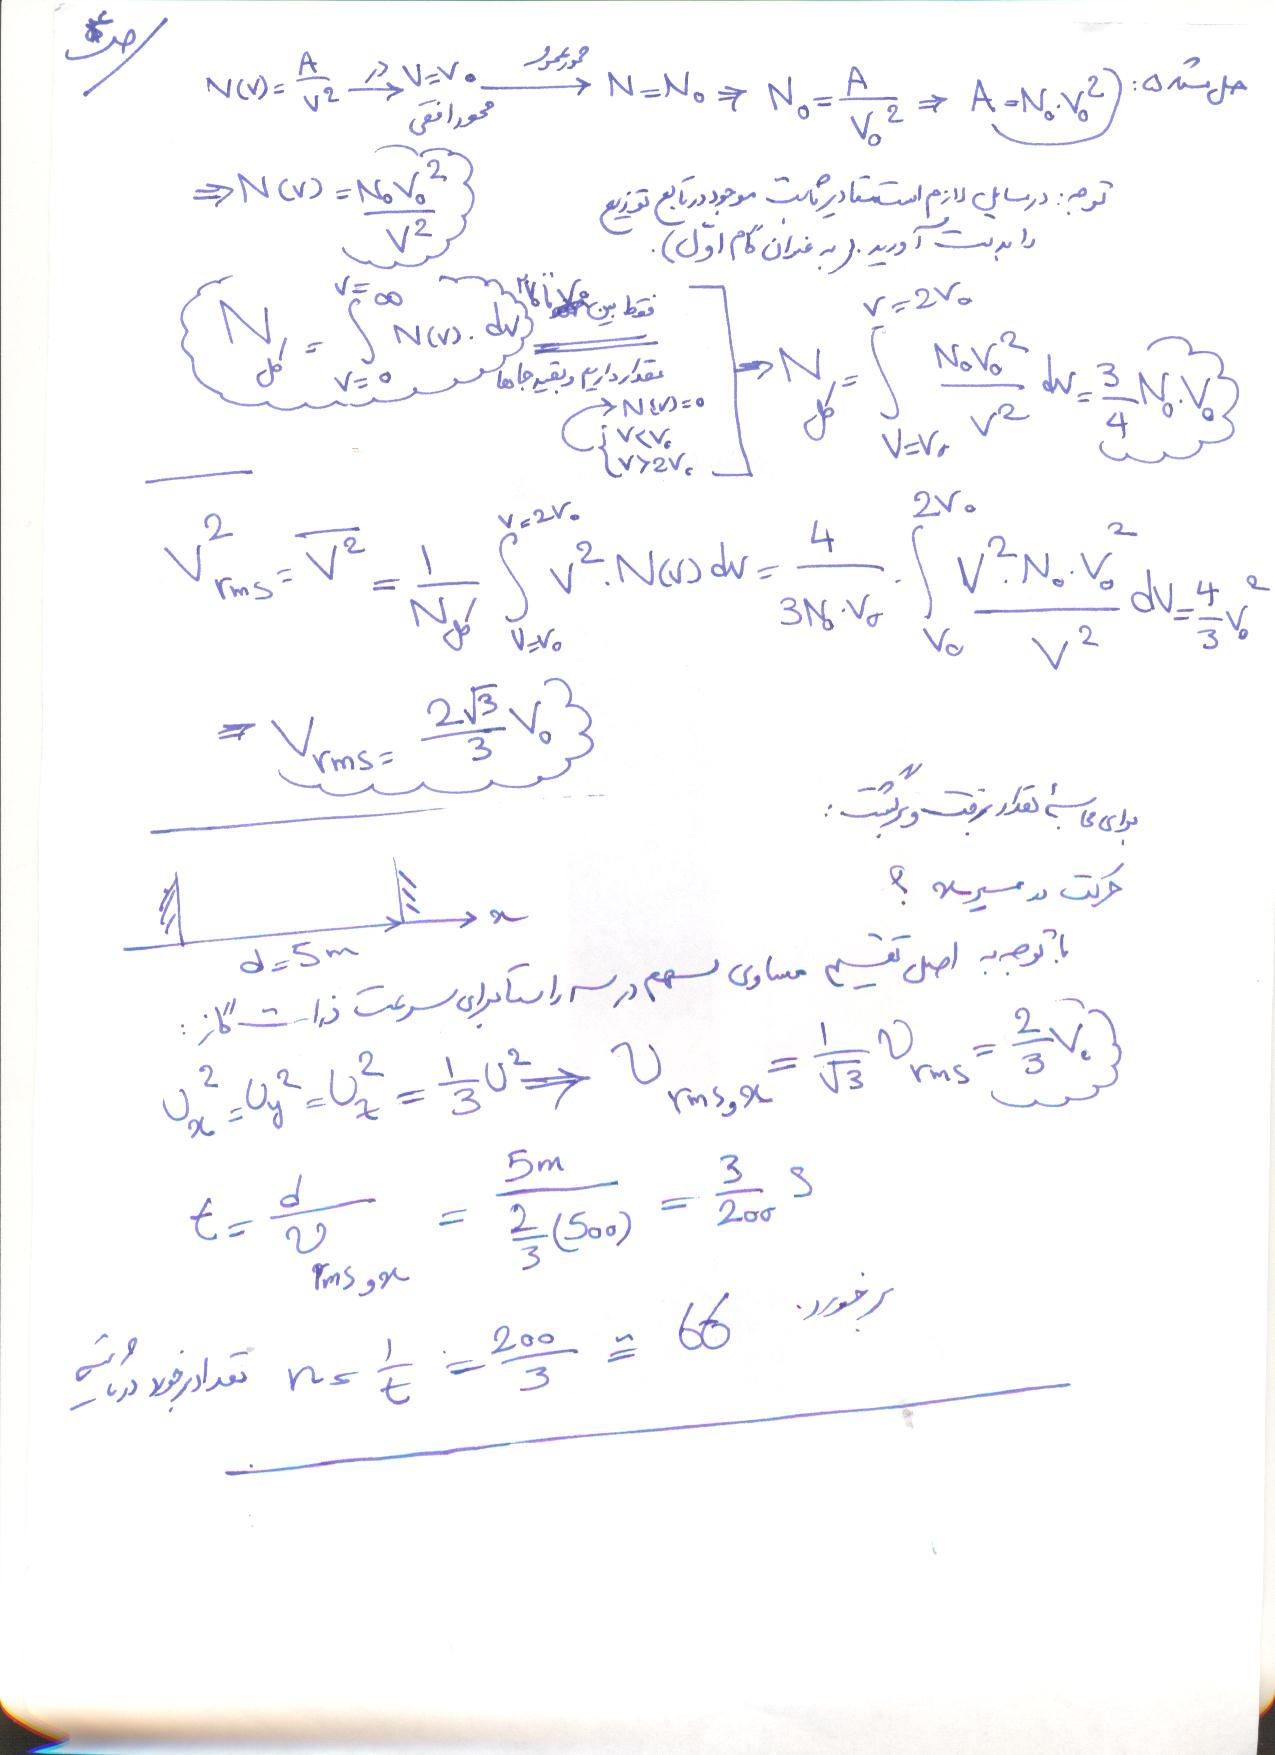 حل مسئله ۵: N(v) = A/v² در محور افقی → v=v₀ محور عمودی → N=N₀ ⇒ N₀ = A/v₀² ⇒ A=N₀.v₀²
⇒ N(v) = N₀v₀²/v²
توجه: در مسایل لازم است مقادیر ثابت موجود در تابع توزیع
را بدست آورید. (به عنوان گام اوّل).
N کل = ∫ v=0 v=∞ N(v).dv
فقط بین v₀ تا 2v₀
مقدار داریم و بقیه جاها
N(v)=0
{ v<v₀
v>2v₀
⇒ N کل = ∫ v=v₀ v=2v₀ N₀v₀²/v² dv = 3/4 N₀.v₀
v²rms = v̄² = 1/N کل ∫ v=v₀ v=2v₀ v².N(v)dv = 4/3N₀.v₀ . ∫ v₀ 2v₀ v².N₀.v₀²/v² dv = 4/3 v₀²
⇒ Vrms = 2√3/3 v₀
برای محاسبهٔ تعداد رفت و برگشت:
حرکت در مسیر x ؟
x
d=5m
با توجه به اصل تقسیم مساوی سهم در سه راستا برای سرعت ذرات گاز:
υx² = υy² = υz² = 1/3 υ² ⇒ υrms,x = 1/√3 υrms = 2/3 v₀
t = d/υrms,x = 5m / 2/3 (500) = 3/200 s
تعداد برخورد در ثانیه n = 1/t = 200/3 ≅ 66 برخورد.